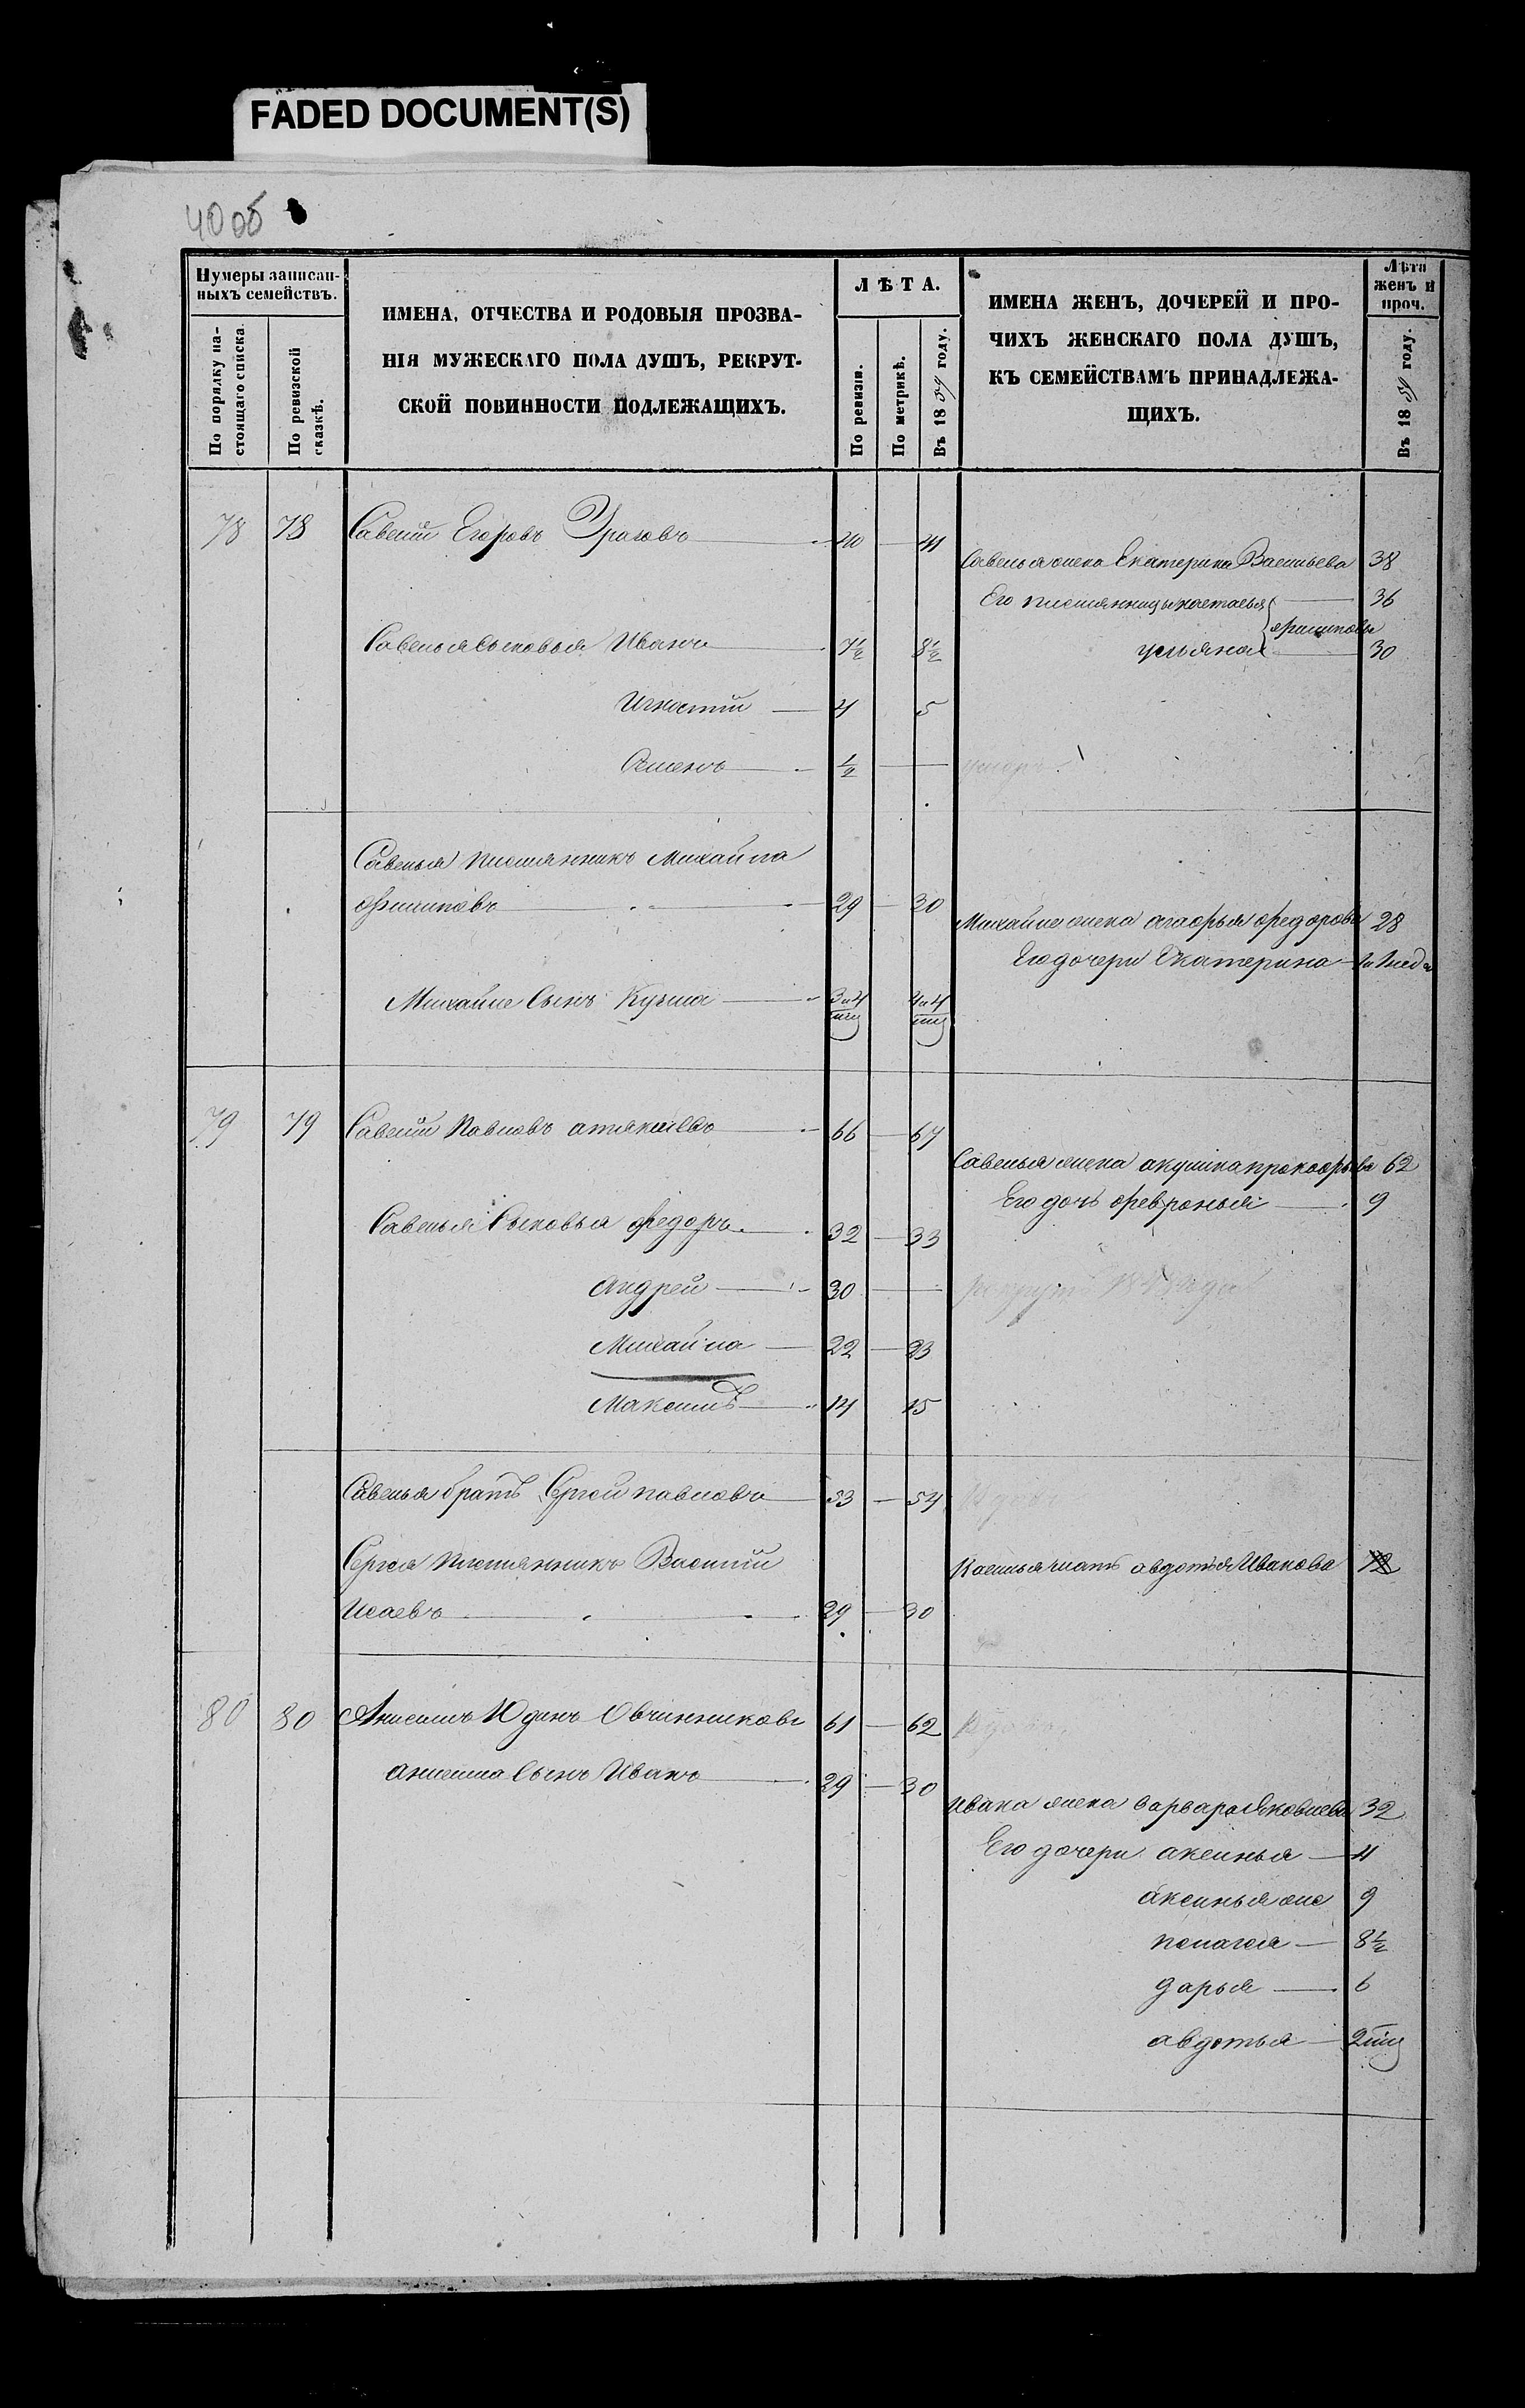 FADED DOCUMENT(S)
40об
Нумеры записан-
ныхъ семействъ.
По порядку на-
стоящаго списка.
По ревизской
сказкѣ.
ИМЕНА, ОТЧЕСТВА И РОДОВЫЯ ПРОЗВА-
НІЯ МУЖЕСКАГО ПОЛА ДУШЪ, РЕКРУТ-
СКОЙ ПОВИННОСТИ ПОДЛЕЖАЩИХЪ.
ЛѢТА.
По ревизіи.
По метрикѣ.
Въ 18 году.
ИМЕНА ЖЕНЪ, ДОЧЕРЕЙ И ПРО-
ЧИХЪ ЖЕНСКАГО ПОЛА ДУШЪ,
КЪ СЕМЕЙСТВАМЪ ПРИНАДЛЕЖА-
ЩИХЪ.
Лѣта
женъ и
проч.
Въ 18 году.
78 78 Савелий Егоровъ 40 41
Савелья жена Екатерина Васильева 38
Его племянницы настасья 36
филипповы
Савелья сыновья Иванъ 7½ 8½ ульяна 30
Игнатий 4 5
Семенъ ½ умеръ
Савелья племянникъ Михайла
филиповъ 29 30
Михайлы жена агафья федорова 28
Его дочери Екатерина
Михайлы сынъ Кузма 3 и 4 4 и 4
79 79 Савелий Павловъ 66 67
Савелья жена акулина прокофьева 62
Его дочь февронья 9
Савелья сыновья федоръ 32 33
Андрей 30 рекрутъ
Михайла 22 23
Максимъ 14 15
Савелья братъ Сергей павловъ 53 54 Вдовъ
Сергея племянникъ Василий
Василья мать авдотья Иванова
Исаевъ 29 30
80 80 Анисимъ Юдинъ Овчинниковъ 61 62 Вдовъ
анисима сынъ Иванъ 29 30
Ивана жена варвара Яковлева 32
Его дочери аксинья 11
аксинья же 9
пелагея 8½
дарья 6
авдотья